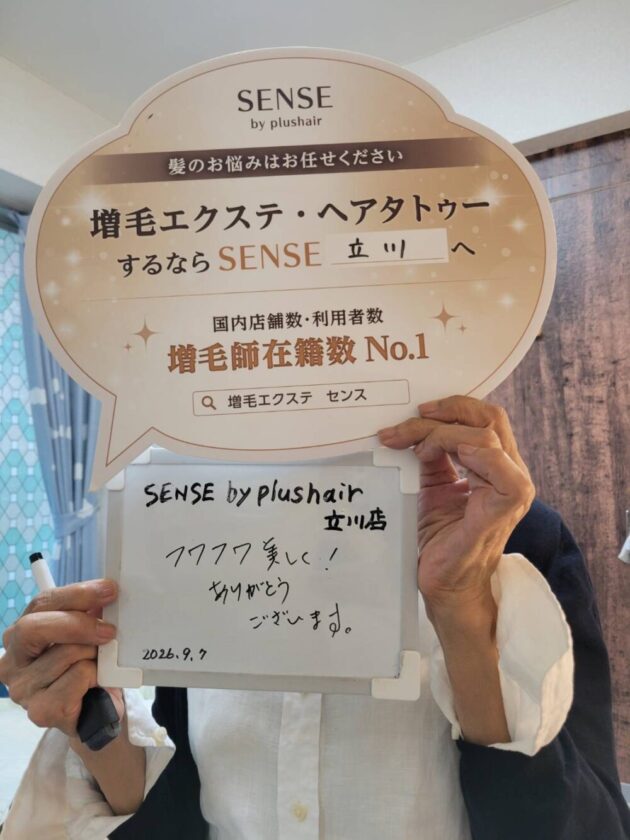 SENSE
by plushair
髪のお悩みはお任せください
増毛エクステ・ヘアタトゥー
するなら SENSE 立川 へ
国内店舗数・利用者数
増毛師在籍数 No.1
増毛エクステ センス
SENSE by plushair
立川店
フワフワ美しく!
ありがとう
ございます。
2026.9.7